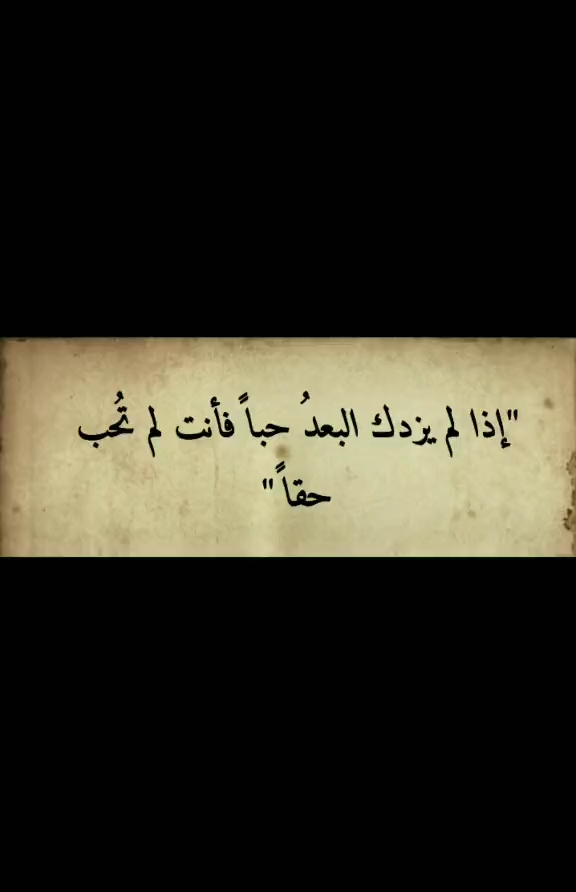 "إذا لم يزدك البعدُ حباً فأنت لم تُحب
حقاً"